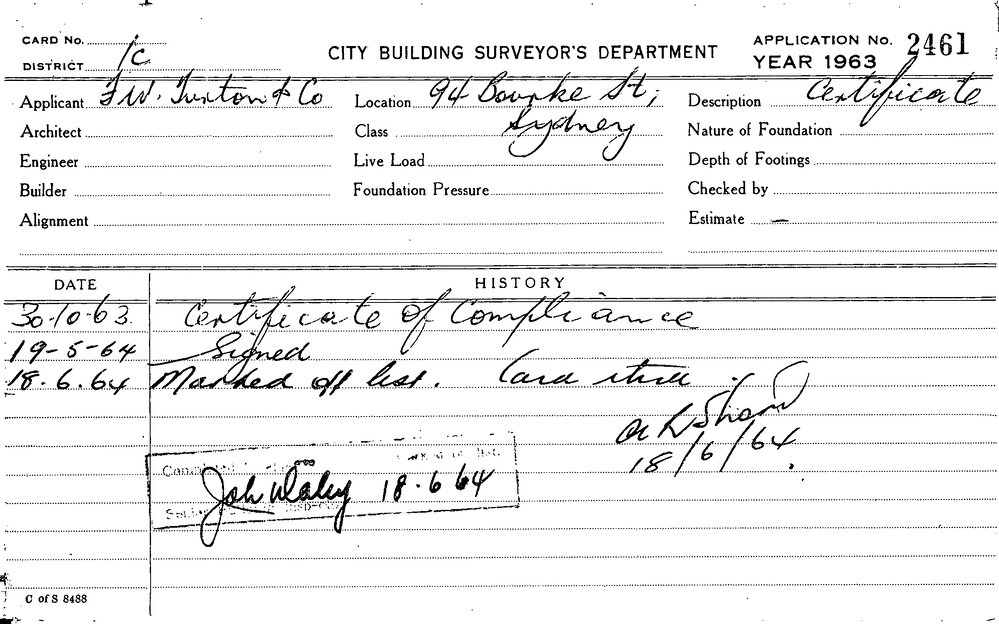 CARD No.
DISTRICT 1c
CITY BUILDING SURVEYOR'S DEPARTMENT
APPLICATION No. 2461
YEAR 1963
Applicant F W. Turton & Co
Location 94 Bourke St; Sydney
Description Certificate
Architect
Class
Nature of Foundation
Engineer
Live Load
Depth of Footings
Builder
Foundation Pressure
Checked by
Alignment
Estimate —
DATE HISTORY
30-10-63 Certificate of Compliance
19-5-64 Signed
18.6.64 Marked off list. Card
18/6/64
18.6 64
C of S 8488